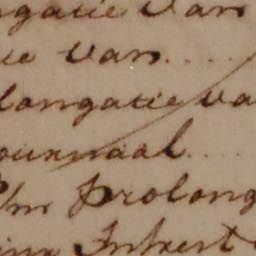 ngatie van
tie van ....
longatie va
ournaal ...
P/m prolong
ing Intrest